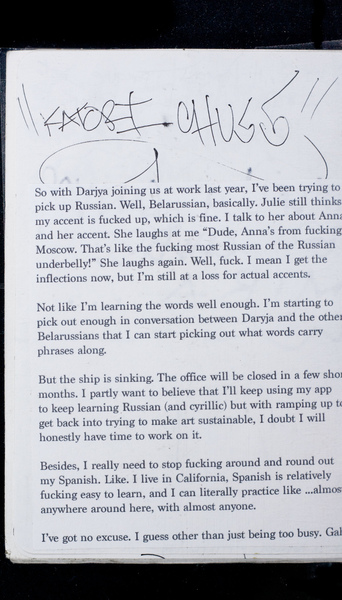 So with Darjya joining us at work last year, I've been trying to
pick up Russian. Well, Belarussian, basically. Julie still thinks
my accent is fucked up, which is fine. I talk to her about Anna
and her accent. She laughs at me “Dude, Anna's from fucking
Moscow. That's like the fucking most Russian of the Russian
underbelly!” She laughs again. Well, fuck. I mean I get the
inflections now, but I'm still at a loss for actual accents.
Not like I'm learning the words well enough. I'm starting to
pick out enough in conversation between Daryja and the other
Belarussians that I can start picking out what words carry
phrases along.
But the ship is sinking. The office will be closed in a few
months. I partly want to believe that I'll keep using my app
to keep learning Russian (and cyrillic) but with ramping up
get back into trying to make art sustainable, I doubt I will
honestly have time to work on it.
Besides, I really need to stop fucking around and round out
my Spanish. Like. I live in California, Spanish is relatively
fucking easy to learn, and I can literally practice like ...almos
anywhere around here, with almost anyone.
I've got no excuse. I guess other than just being too busy.